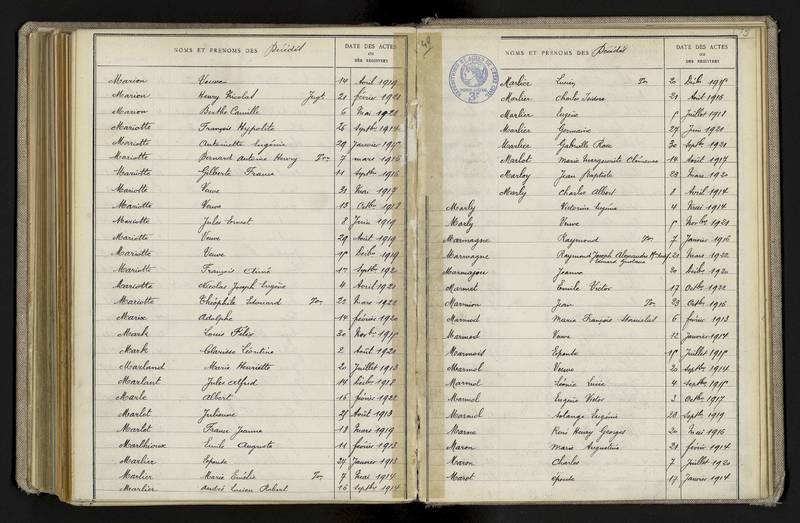 NOMS ET PRÉNOMS DES Décédés
DATE DES ACTES
OU
DES REGISTRES
Marion Veuve 14 Avril 1919
Marion Henry Nicolas Jugt 21 février 1921
Marion Berthe Camille 6 Mai 1920
Mariotte François Hyppolite 26 Septbre 1914
Mariotte Antoinette Eugénie 29 Janvier
Mariotte Bernard Antoine Henry Ton 7 mars 1916
Mariotte Gilberte France 11 Septbre 1916
Mariotte Veuve 31 Mai 1917
Mariotte Veuve 13 Octbre 1918
Mariotte Jules Ernest 8 Juin 1919
Mariotte Veuve 29 Août 1919
Mariotte Veuve Décbre 1919
Mariotte François Aimé Septbre 1920
Mariotte Nicolas Joseph Eugène 4 Avril 1921
Mariotte Théophile Edouard Ton 22 Mars 1922
Marix Adolphe 14 février 1920
Mark Louis Félix 30 Novbre
Mark Clarisse Léontine 2 Août 1920
Marland Marie Henriette 20 Juillet 1913
Marlaut Jules Alfred 14 Décbre 1918
Marle Albert 16 février 1922
Marlet Julienne Août 1913
Marlot France Jeanne 13 Mars 1919
Marlhioux Emile Auguste 11 février 1913
Marlier Epouse 24 Janvier 1913
Marlier Marie Emélie Ton 7 Mai 1914
Marlier André Lucien Robert 16 Septbre 1914
49
73
NOMS ET PRÉNOMS DES Décédés
DATE DES ACTES
OU
DES REGISTRES
Marlier Lucien Ton 20 Décbre
Marlier Charles Isidore 21 Août 1916
Marlier Eugène Juillet 1918
Marlier Germaine 27 Juin 1921
Marlier Gabrielle Rose 30 Septbre 1921
Marlot Marie Marguerite Clémence 14 Août 1917
Marloy Jean Baptiste 23 Mars 1920
Marly Charles Albert 8 Avril 1914
Marly Victorine Eugénie 4 Mai 1914
Marly Veuve Novbre 1921
Marmagne Raymond Ton 7 Janvier 1916
Marmagne Raymond Joseph Alexandre 21 Mars 1922
Edouard
Jeanne 20 Décbre 1920
Marmet Emile Victor 17 Octbre 1922
Marmion Jean Ton 23 Octbre 1916
Marmod Marie François Stanislas 6 février 1913
Marmod Veuve 12 Janvier 1914
Epouse Juillet
Marmol Veuve 20 Septbre 1914
Marmol Léonie Lucie 4 Septbre
Marmol Eugène Victor 3 Octbre 1917
Marmol Solange Eugénie 28 Septbre 1919
Marne René Henry Georges 20 Mai 1916
Maron Marie Augustine 21 février 1914
Maron Charles 7 Juillet 1920
Marot Epouse 17 Janvier 1914